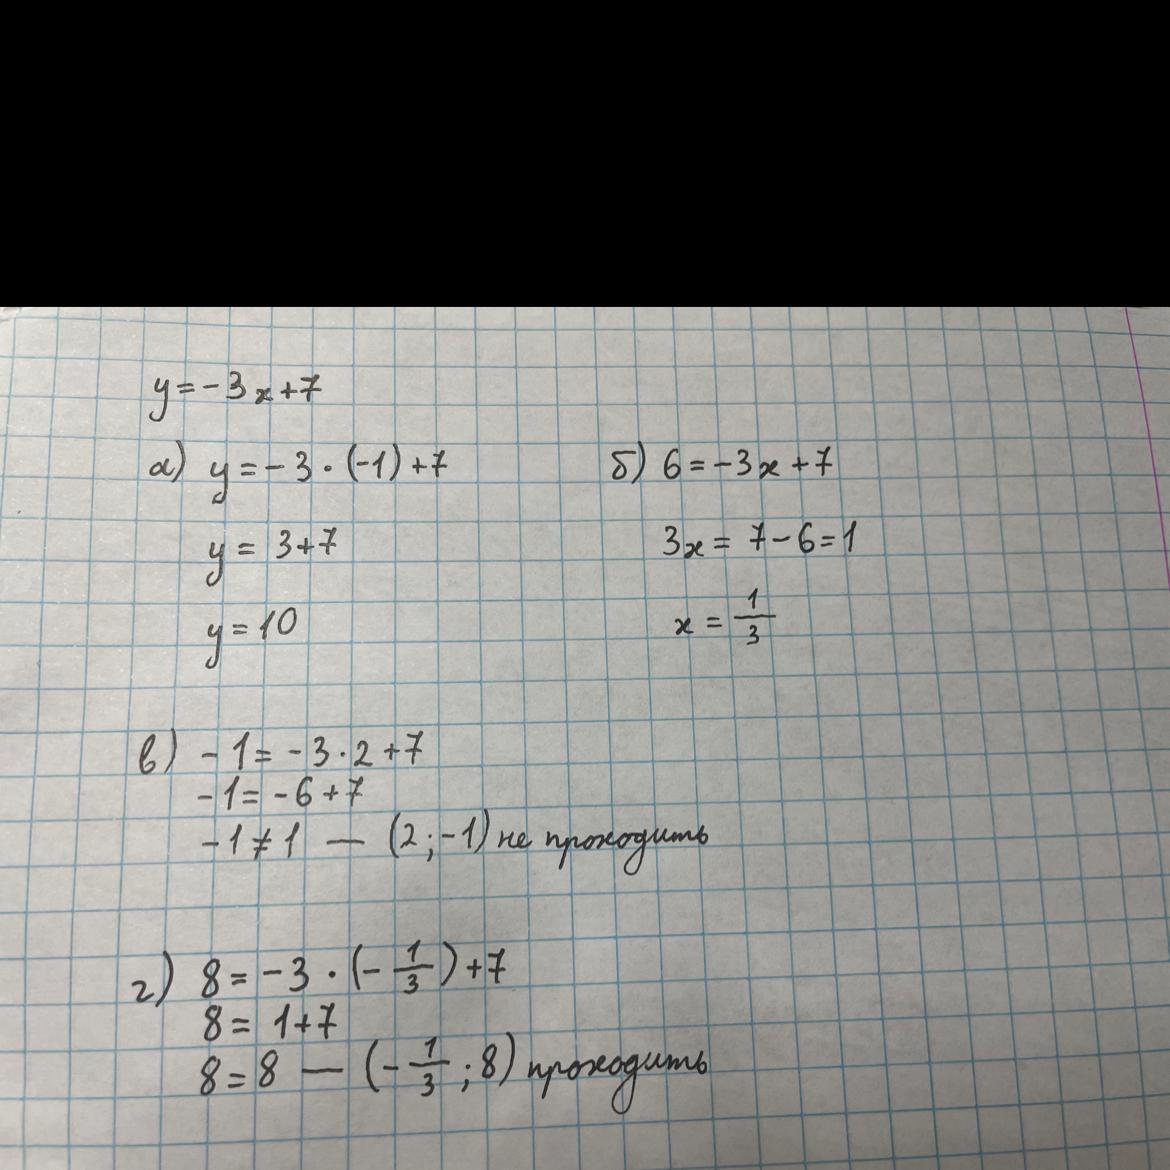 y=-3x+7
а) y=-3·(-1)+7
y=3+7
y=10
б) 6=-3x+7
3x=7-6=1
x=1/3
в) -1=-3·2+7
-1=-6+7
-1≠1 — (2;-1) не проходить
г) 8=-3·(-1/3)+7
8=1+7
8=8 — (-1/3;8) проходить